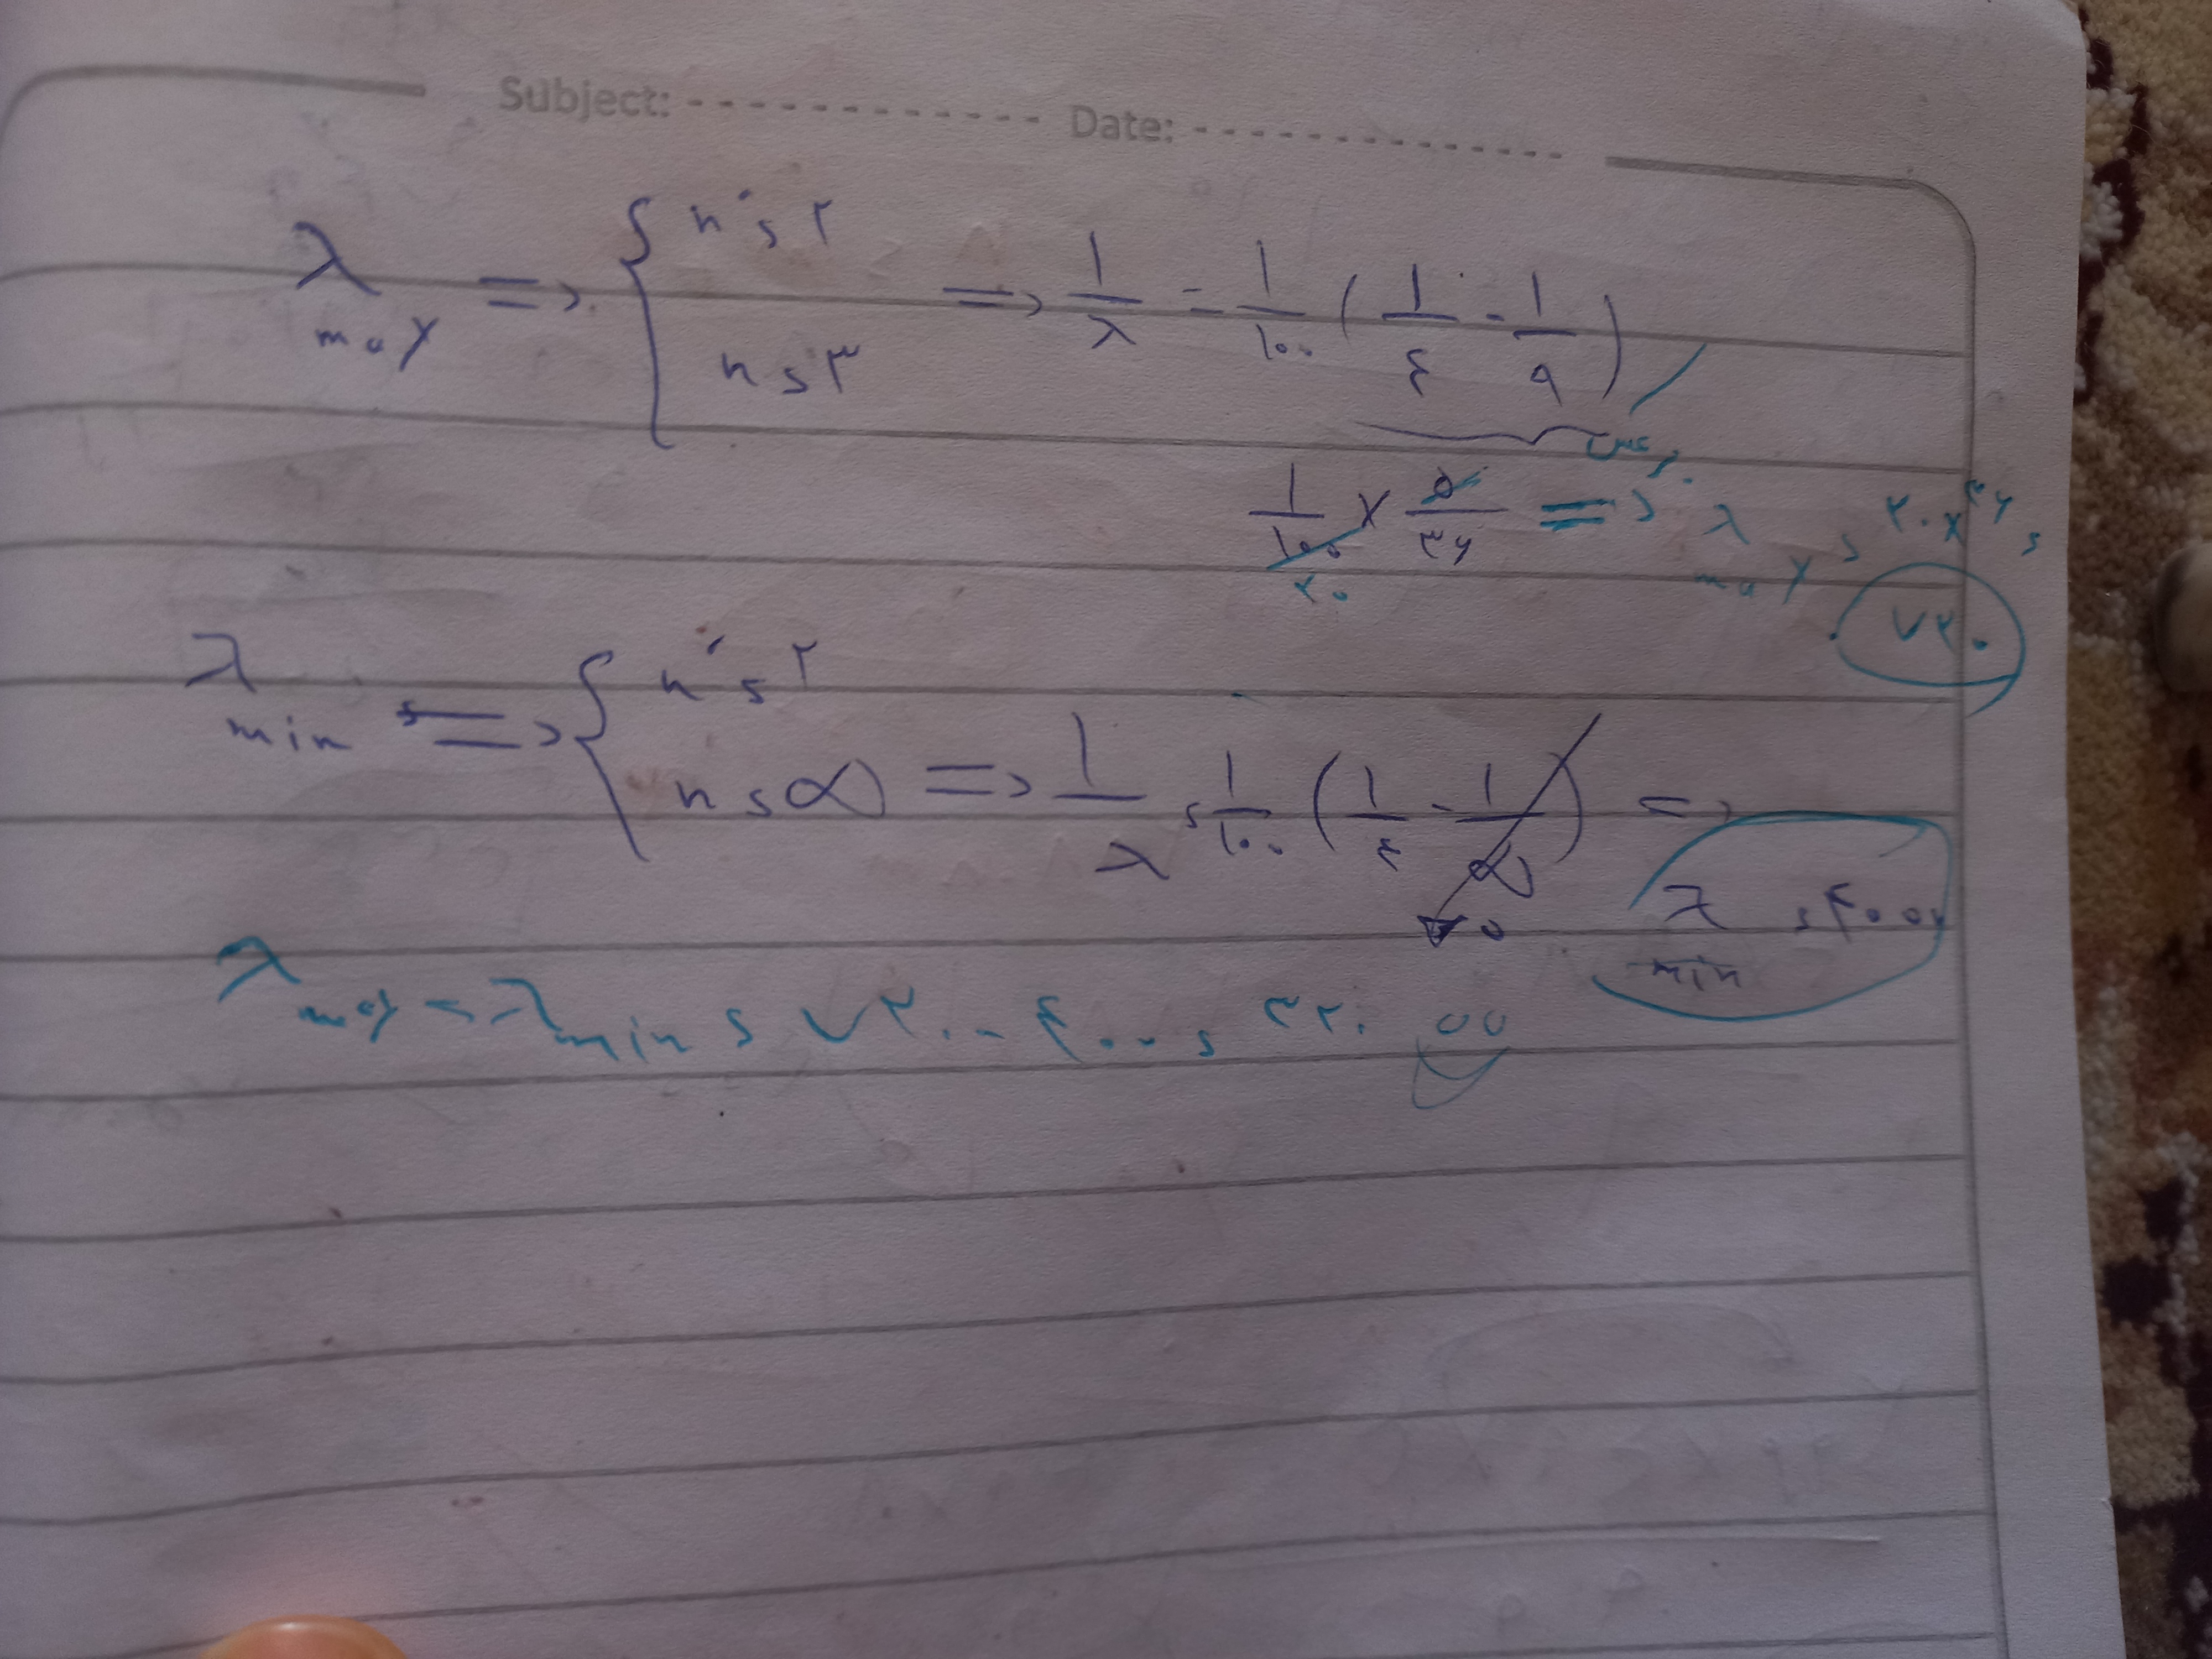 Subject: Date:
λmax => { n' = ۲ n = ۳ => 1/λ = ۱/۱۰۰ (۱/۴ - ۱/۹)
برعکس
۱/۱۰۰ × ۵/۳۶ => λmax = ۲۰ × ۳۶ =
۲۰
۷۲۰
λmin => { n' = ۲ n = ∞ => ۱/λ = ۱/۱۰۰ (۱/۴ - ۱/∞) =>
۰
λmin = ۴۰۰
λmax - λmin = ۷۲۰ - ۴۰۰ = ۳۲۰